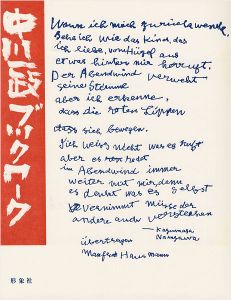 中川一政ブックワーク
Wenn ich mich zurückwende,
sehe ich wie das Kind, das
ich liebe, vom Hügel aus
etwas hinter mir herruft.
Der Abendwind verweht
seine Stimme
aber ich erkenne,
dass die roten Lippen
sich bewegen.
Ich weiss nicht was es ruft
aber es
im Abendwind immer
weiter
es was es selbst
vernimmt müsse der
andere auch verstehen
Kazumasa
Nakagawa
übertragen
Manfred Hausmann
形象社